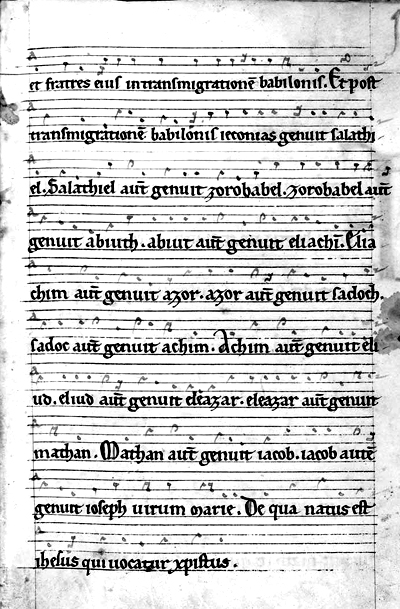 et fratres eius in transmigrationē babilonis. Et post
transmigrationē babilonis ieconias genuit salathi
el. Salathiel aut̄ genuit zorobabel. zorobabel aut̄
genuit abiuth. abiut aut̄ genuit eliachī. Elia
chim aut̄ genuit azor. azor aut̄ genuit sadoch.
sadoc aut̄ genuit achim. Achim aut̄ genuit eli
ud. eliud aut̄ genuit eleazar. eleazar aut̄ genuit
mathan. Mathan aut̄ genuit iacob. iacob autē
genuit ioseph uirum marie. De qua natus est
ihesus qui uocatur xpistus.